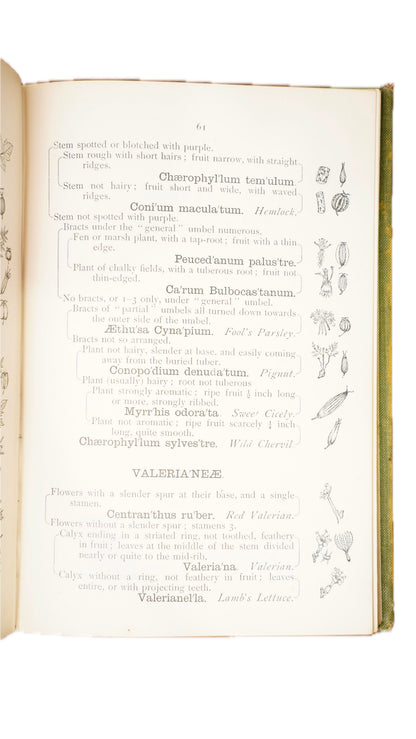 61
Stem spotted or blotched with purple.
Stem rough with short hairs; fruit narrow, with straight
ridges.
Chærophyl'lum tem'ulum.
Stem not hairy; fruit short and wide, with waved
ridges.
Coni'um macula'tum. Hemlock.
Stem not spotted with purple.
Bracts under the "general" umbel numerous.
Fen or marsh plant, with a tap-root; fruit with a thin
edge.
Peuced'anum palus'tre.
Plant of chalky fields, with a tuberous root; fruit not
thin-edged.
Ca'rum Bulbocas'tanum.
No bracts, or 1–3 only, under "general" umbel.
Bracts of "partial" umbels all turned down towards
the outer side of the umbel.
Æthu'sa Cyna'pium. Fool's Parsley.
Bracts not so arranged.
Plant not hairy, slender at base, and easily coming
away from the buried tuber.
Conopo'dium denuda'tum. Pignut.
Plant (usually) hairy; root not tuberous
Plant strongly aromatic; ripe fruit ½ inch long
or more, strongly ribbed.
Myrr'his odora'ta. Sweet Cicely.
Plant not aromatic; ripe fruit scarcely ¼ inch
long, quite smooth.
Chærophyl'lum sylves'tre. Wild Chervil
VALERIA'NEÆ.
Flowers with a slender spur at their base, and a single
stamen.
Centran'thus ru'ber. Red Valerian.
Flowers without a slender spur; stamens 3.
Calyx ending in a striated ring, not toothed, feathery
in fruit; leaves at the middle of the stem divided
nearly or quite to the mid-rib.
Valeria'na. Valerian.
Calyx without a ring, not feathery in fruit; leaves
entire, or with projecting teeth.
Valerianel'la. Lamb's Lettuce.